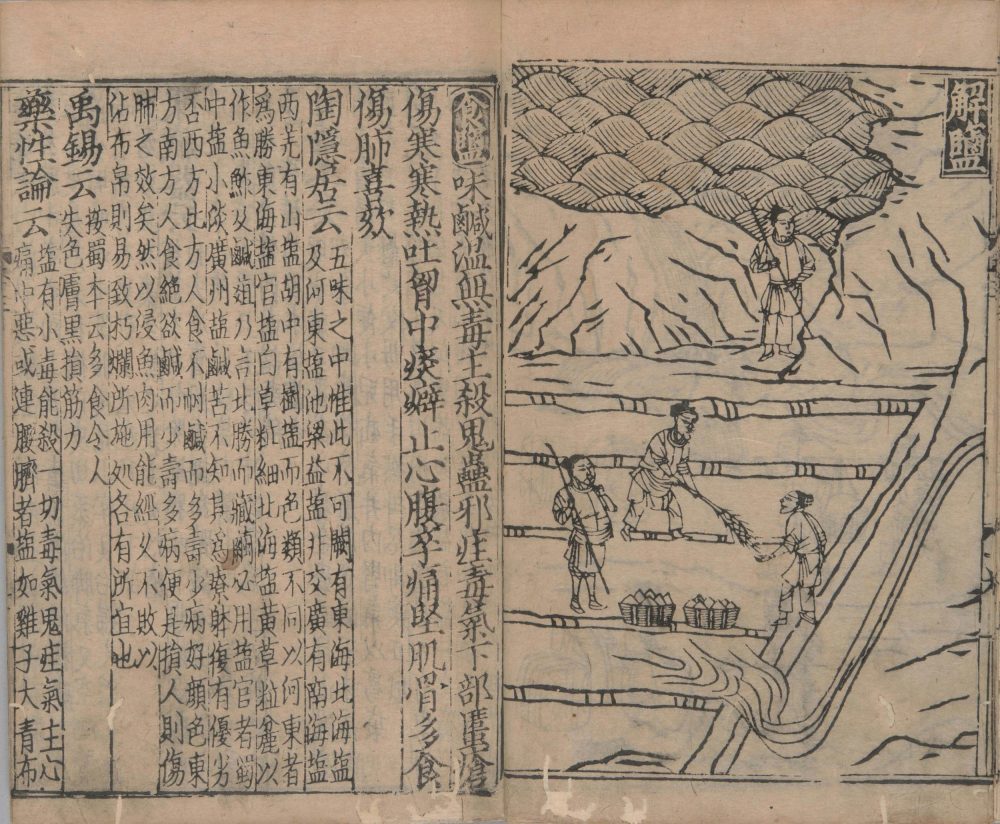 解鹽
食塩味鹹温無毒主殺鬼蠱邪疰毒氣下部䘌瘡
傷寒寒熱吐胷中痰癖止心腹卒痛堅肌骨多食
傷肺喜欬
陶隱居云五味之中惟此不可闕有東海北海塩
及河東塩池梁益塩井交廣有南海塩
西羌有山塩胡中有樹塩而色類不同以河東者
爲勝東海塩官塩白草粒細北海塩黃草粒麄以
作魚鮓及鹹葅乃言北勝而藏繭必用塩官者蜀
中塩小淡廣州塩鹹苦不知其爲療躰復有優劣
否西方北方人食不耐鹹而多壽少病好顔色東
方南方人食絶欲鹹而少壽多病便是損人則傷
肺之效矣然以浸魚肉用能經久不敗以
沾布帛則易致朽爛所施处各有所宜也
禹錫云按蜀本云多食令人
失色膚黒損筋力
藥性論云塩有小毒能殺一切毒氣鬼疰氣主心
痛中惡或連腰臍者塩如雞子大青布